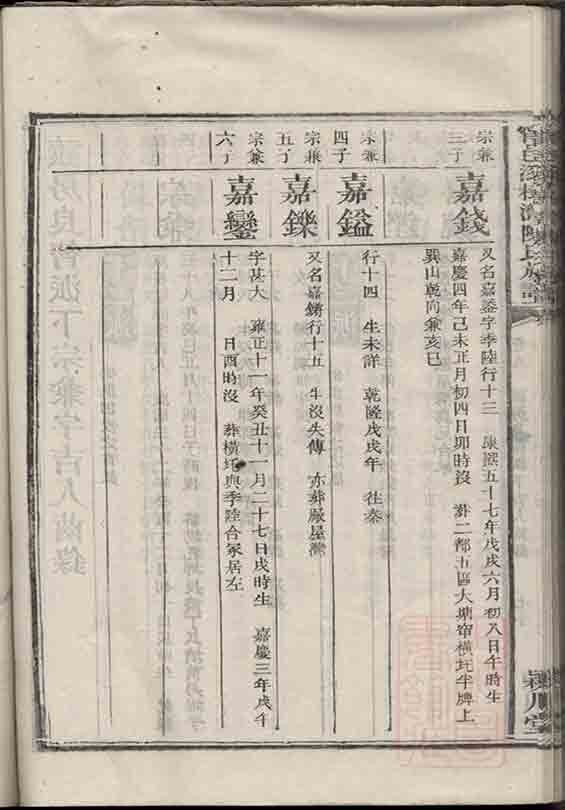 宗兼
三子
嘉錢
又名嘉 字季陸行十三 康熙五十七年戊戌六月初八日午時生
嘉慶四年己未正月初四日卯時沒 葬二都五區大塘 橫圫半牌上
巽山乾向兼亥巳
宗兼
四子
嘉鎰
行十四 生未詳 乾隆戊戌年 往秦
宗兼
五子
嘉鑠
又名嘉銹行十五 生沒失傳 亦葬嚴屋灣
宗兼
六子
嘉鑾
字甚大 雍正十一年癸丑十一月二十七日戌時生 嘉慶三年戊午
十二月 日酉時沒 葬橫圫與季陸合冢居左
陳氏族譜
潁川堂